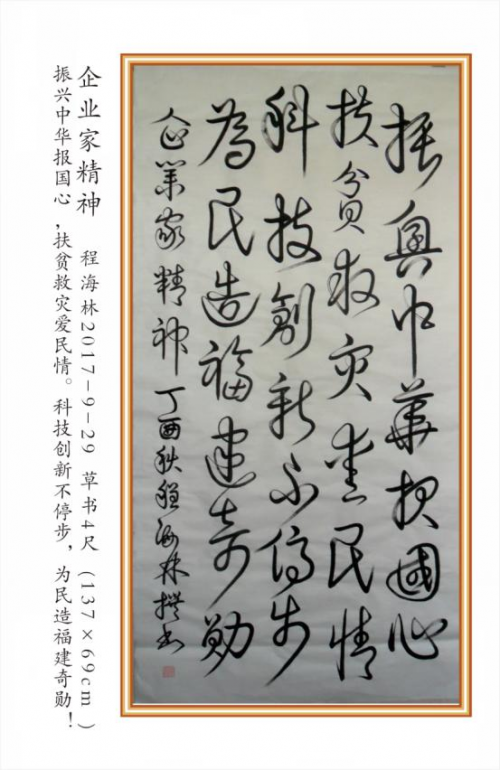 振興中華报國心
扶貧救灾爱民情
科技創新不停步
為民造福建奇勋
企業家精神 丁酉秋程海林撰书
企业家精神 程海林2017-9-29 草书4尺 (137×69cm)
振兴中华报国心,扶贫救灾爱民情。科技创新不停步,为民造福建奇勋!